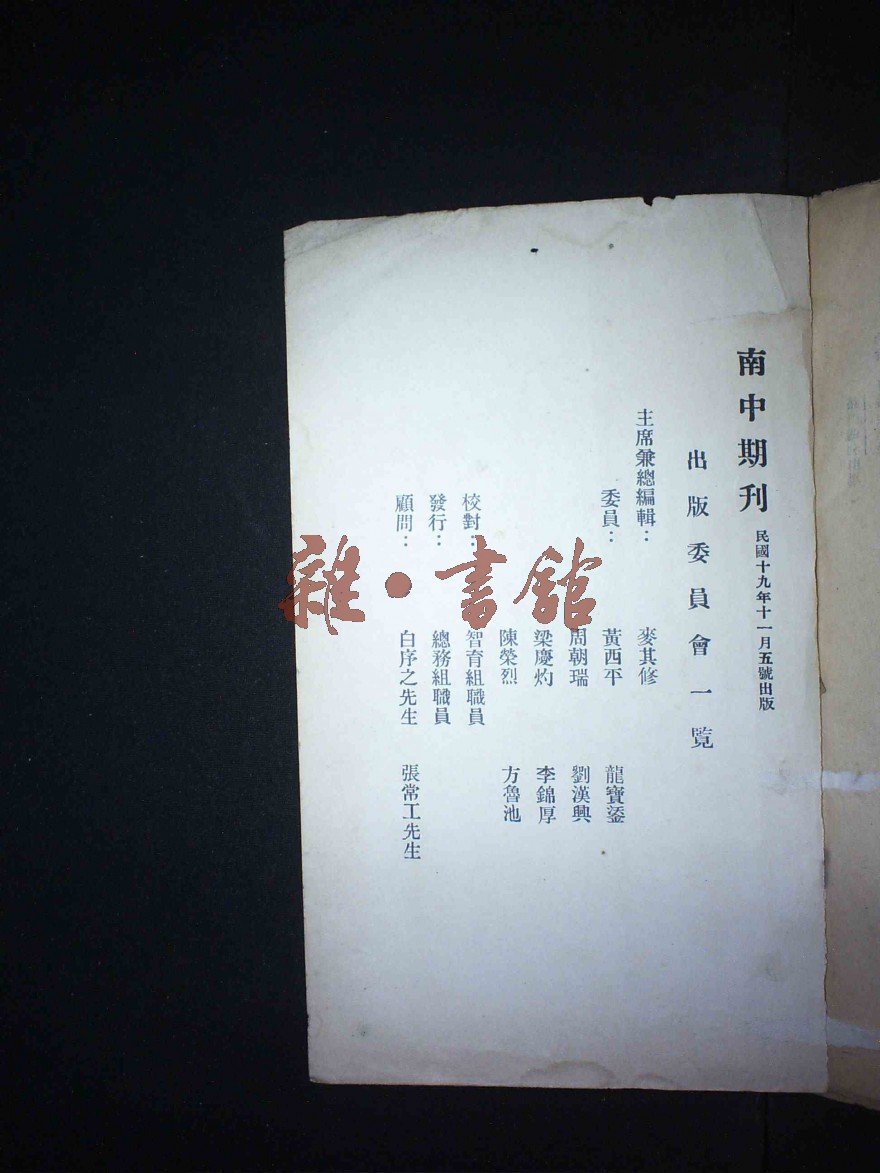 南中期刊 民國十九年十一月五號出版
出版委員會一覽
主席兼總編輯： 麥其修
委員： 黃西平 龍寶鎏
周朝瑞 劉漢興
梁慶灼 李錦厚
陳榮烈 方魯池
校對： 智育組職員
發行： 總務組職員
顧問： 白序之先生 張常工先生
雜·書館